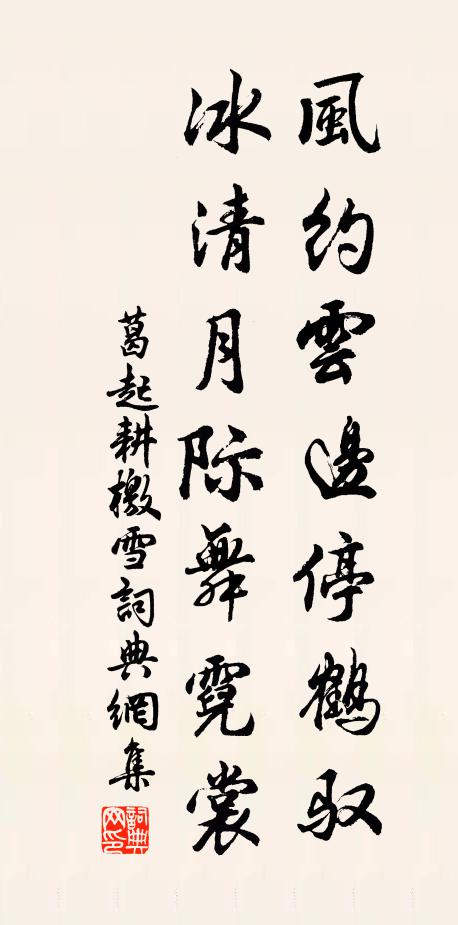 風約雲邊停鶴馭
冰清月际舞霓裳
葛起耕檄雪詞典網集
詞典网印